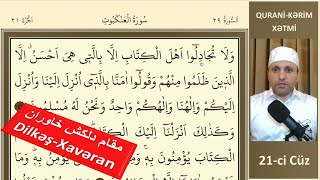 الجزء ٢١
سورة العنكبوت
السورة ٢٩
وَلَا تُجَادِلُوا أَهْلَ الْكِتَابِ إِلَّا بِالَّتِي هِيَ أَحْسَنُ إِلَّا
الَّذِينَ ظَلَمُوا مِنْهُمْ وَقُولُوا آمَنَّا بِالَّذِي أُنْزِلَ إِلَيْنَا وَأُنْزِلَ
إِلَيْكُمْ وَإِلَهُنَا وَإِلَهُكُمْ وَاحِدٌ وَنَحْنُ لَهُ مُسْلِمُونَ
وَكَذَلِكَ أَنْزَلْنَا إِلَيْكَ الْكِتَابَ
يُؤْمِنُونَ بِهِ وَمِنْ
مقام دلكش خاوران
Dilkeş-Xavəran
QURANİ-KƏRİM
XƏTMİ
21-ci Cüz